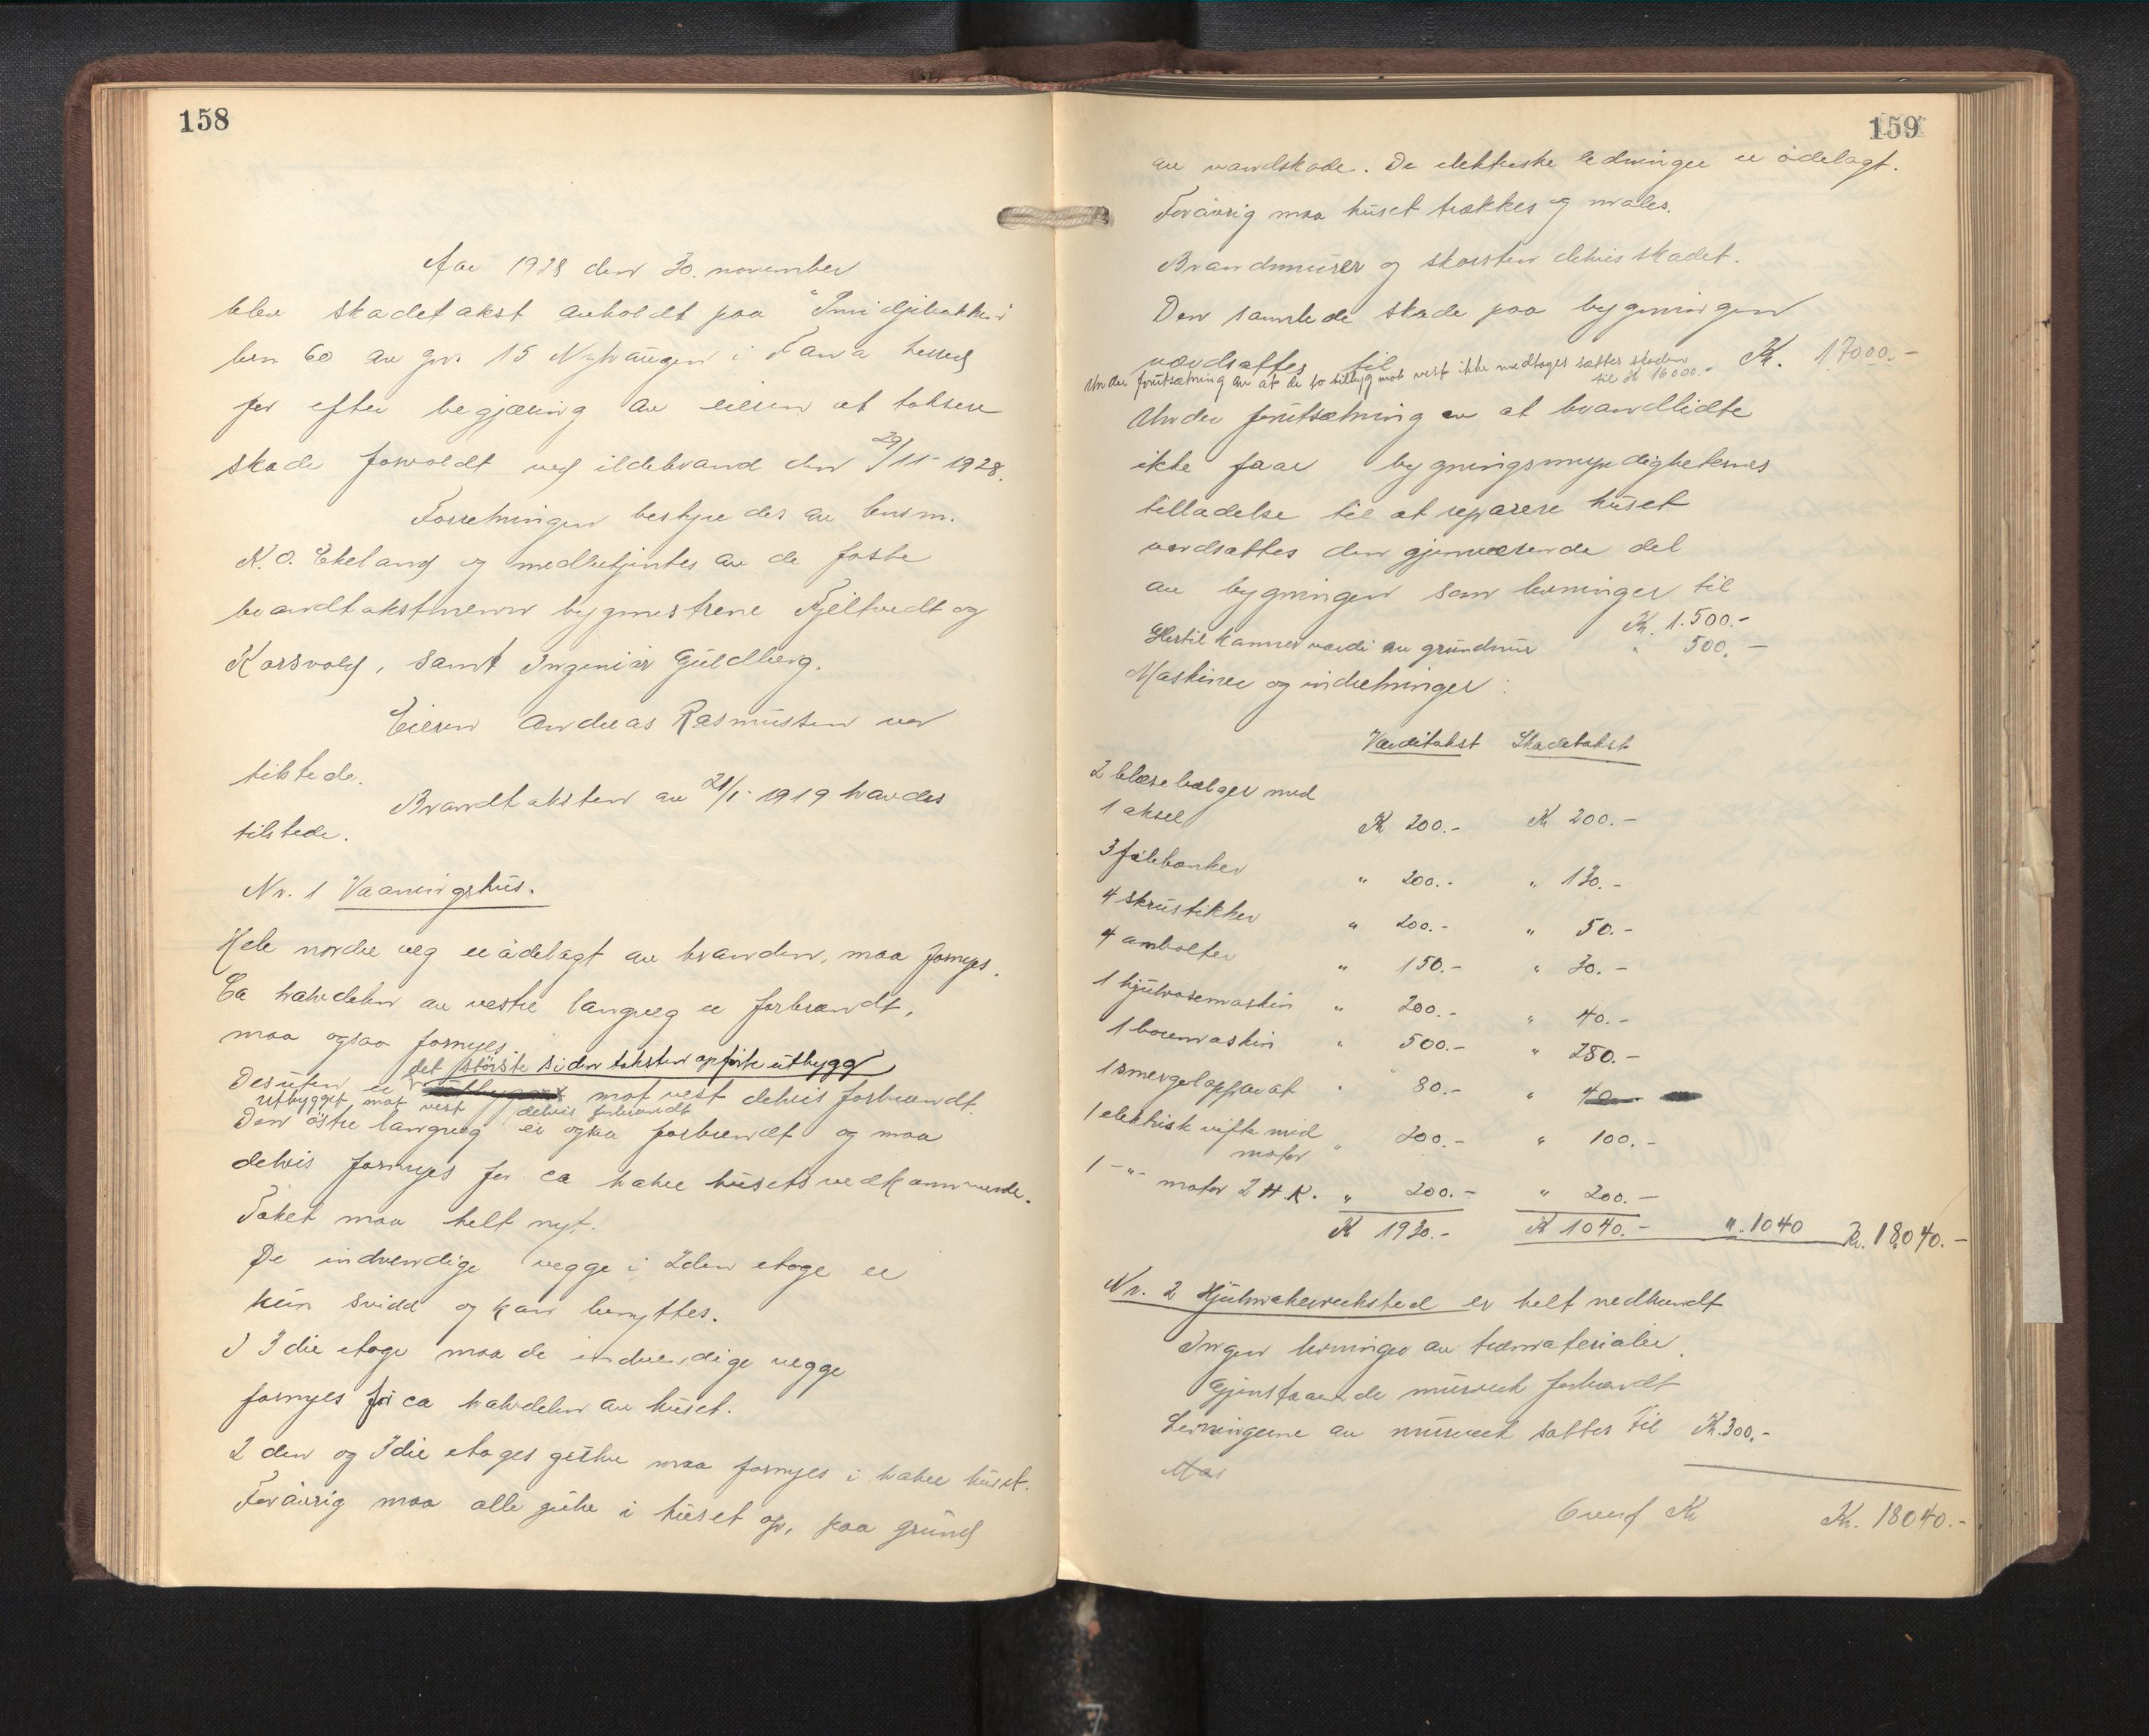 158
Aar 1928 den 30. november
blev skadetakst avholdt paa "Smidjebakken"
brn 60 av gnr. 15 Nyhaugen i Fana herred
for efter begjæring av eieren at taksere
skade forvoldt ved ildebrand den 29/11-1928.
Forretningen bestyredes av lensm.
K. O. Ekeland og medbetjentes av de faste
brandtakstmenn bygmestrene Fjeltvedt og
Korsvold, samt Ingeniør Guldberg.
Eieren Andreas Rasmussen var
tilstede.
Brandtaksten av 21/1-1919 havdes
tilstede.
Nr. 1 Vaaningshus.
Hele nordre veg er ødelagt av branden, maa fornyes.
Ca halvdelen av vestre langveg er forbrændt,
maa ogsaa fornyes.
det største siden taksten opførte utbygg
Desuten er mot vest delvis forbrændt.
utbygget mot vest delvis forbrændt
Den østre langveg er ogsaa forbrændt og maa
delvis fornyes for ca halve husets vedkommende.
Taket maa helt nyt.
De indvendige vegge i 2den etage er
kun svidd og kan benyttes.
I 3die etage maa de indvendige vegge
fornyes for ca halvdelen av huset.
2den og 3die etages gulve maa fornyes i halve huset.
Forøvrig maa alle gulve i huset op, paa grund
159
av vandskade. De elektriske ledninger er ødelagt.
Forøvrig maa huset trækkes og males.
Brandmurer og skorsten delvis skadet.
Den samlede skade paa bygningen
værdsættes til Kr. 17000.-
Under forutsætning av at de to tilbyg mot vest ikke medtages sættes skaden
til Kr 16000.-
Under forutsætning av at brandlidte
ikke faar bygningsmyndighetenes
tilladelse til at reparere huset
værdsættes den gjenværende del
av bygningen som levninger til
Kr. 1.500.-
Hertil kommer værdi av grundmur " 500.-
Maskiner og indretninger:
Værditakst Skadetakst
2 blæsebælger med
1 aksel Kr 200.- Kr 200.-
3 filebænker " 200.- " 130.-
4 skrustikker " 200.- " 50.-
4 ambolter " 150.- " 30.-
1 hjulvasemaskin " 200.- " 40.-
1 boremaskin " 500.- " 250.-
1 smergelapparat " 80.- " 40.-
1 elektrisk vifte med
motor " 200.- " 100.-
1 -"- motor 2 H.K. " 200.- " 200.-
Kr 1930.- Kr 1040.- " 1040 Kr. 18040.-
Nr. 2 Hjulmakerverksted er helt nedbrændt
Ingen levninger av træmaterialer.
Gjenstaaende murverk forbrændt
Levningerne av murverk sættes til Kr. 300.-
Overf Kr Kr. 18040.-